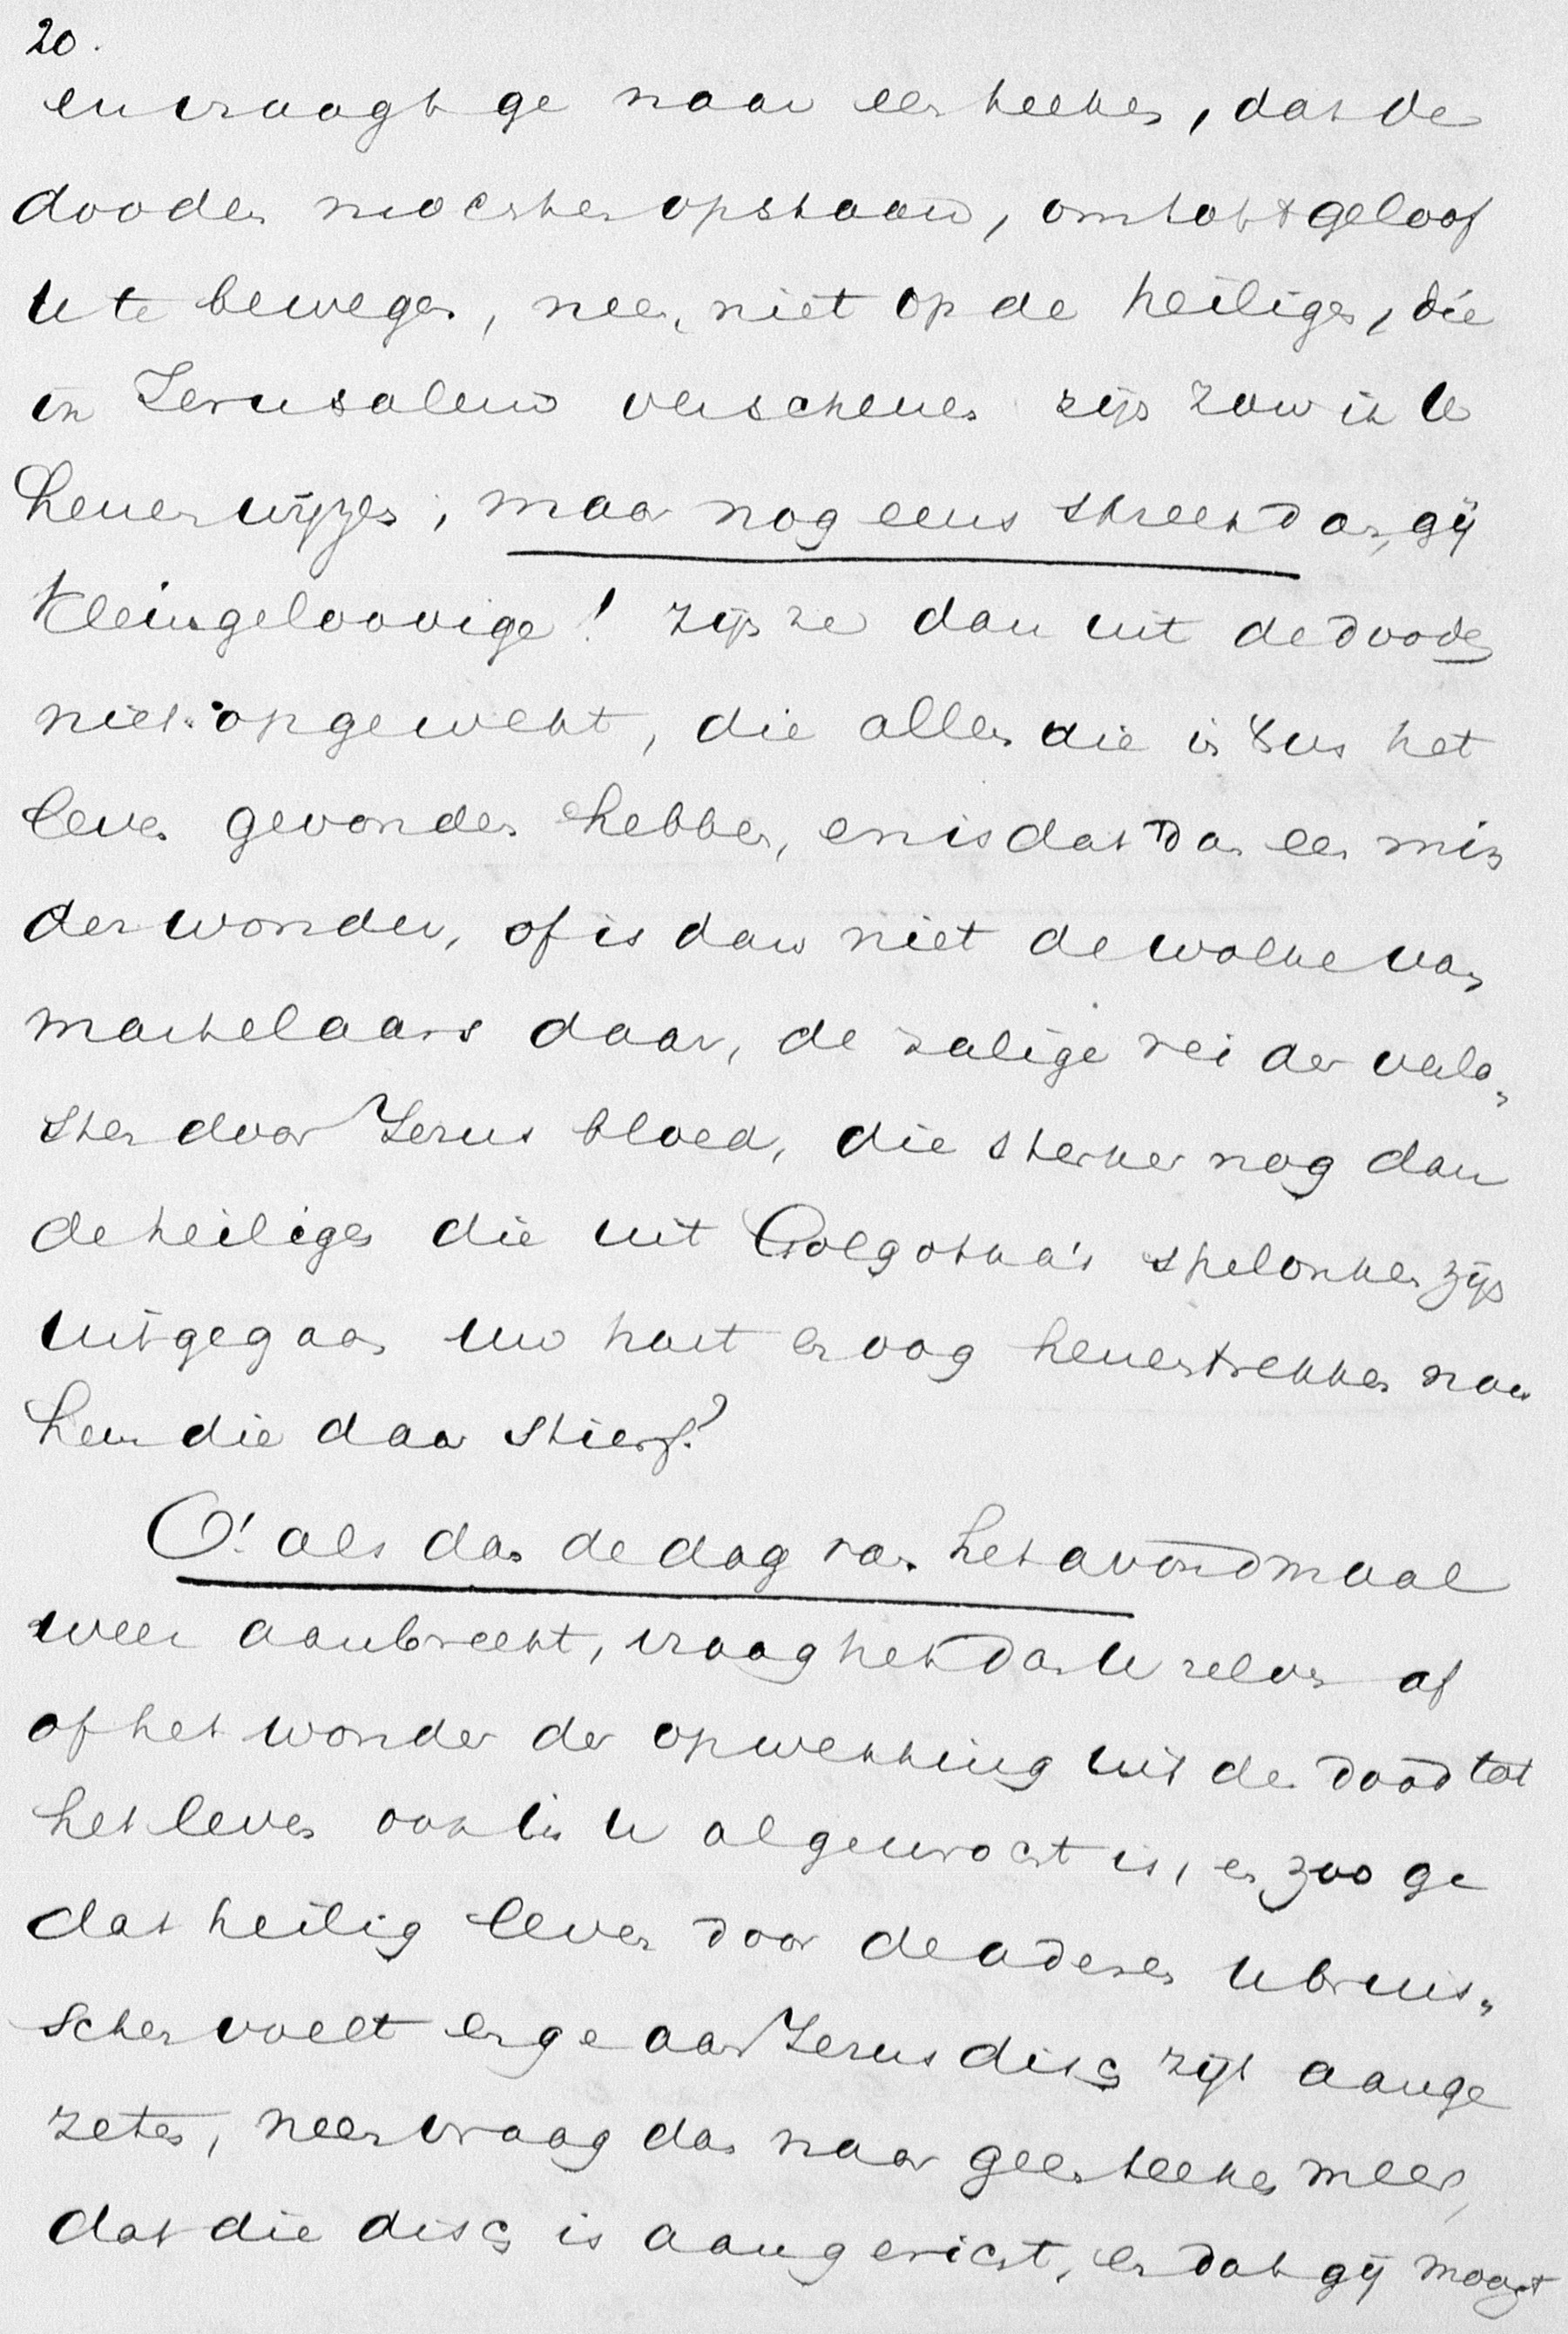 20.
en vraagt ge naar een teeken, dat de
dooden moesten opstaan, om tot 't geloof
U te bewegen, neen, niet op de heiligen, die
in Jerusalem verschenen zijn zou ik U
henen wijzen, maar nog eens spreekt dan, gij
kleingeloovige! zijn ze dan uit de dooden
niet opgewekt, die allen die in Jesus het
leven gevonden hebben, en is dat dan een min
der wonder, of is daar niet de wolke van
martelaars daar, de zalige rei der verlo„
sten door Jezus bloed, die sterker nog dan
de heiligen die uit Golgotha's spelonken zijn
uitgegaan Uw hart en oog henentrekken naar
hem die daar stierf?
O! als dan de dag van het avondmaal
weer aanbreekt, vraag het dan U zelven af
of het wonder der opwekking uit den dood tot
het leven ook in U al gewrocht is, en zoo ge
dat heilig leven door de aderen U bruis„
schen voelt en ge aan Jezus disch zijt aange
zeten, neen vraag dan naar geen teeken meer,
dat die disch is aangericht, en dat gij moogt